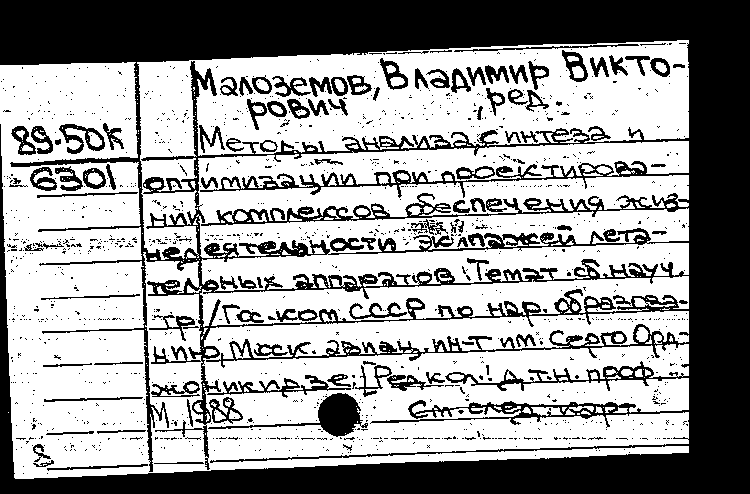 Малоземов, Владимир Викто-
рович , ред.
89-50к
6301
Методы анализа, синтеза и
оптимизации при проектирова-
нии комплексов обеспечения жиз-
недеятельности экипажей лета-
тельных аппаратов : Темат. сб. науч.
тр. / Гос. ком. СССР по нар. образова-
нию, Моск. авиац. ин-т им. Серго Орд-
жоникидзе; [Редкол.: д.т.н. проф. ...
М., 1988.
См. след. карт.
8